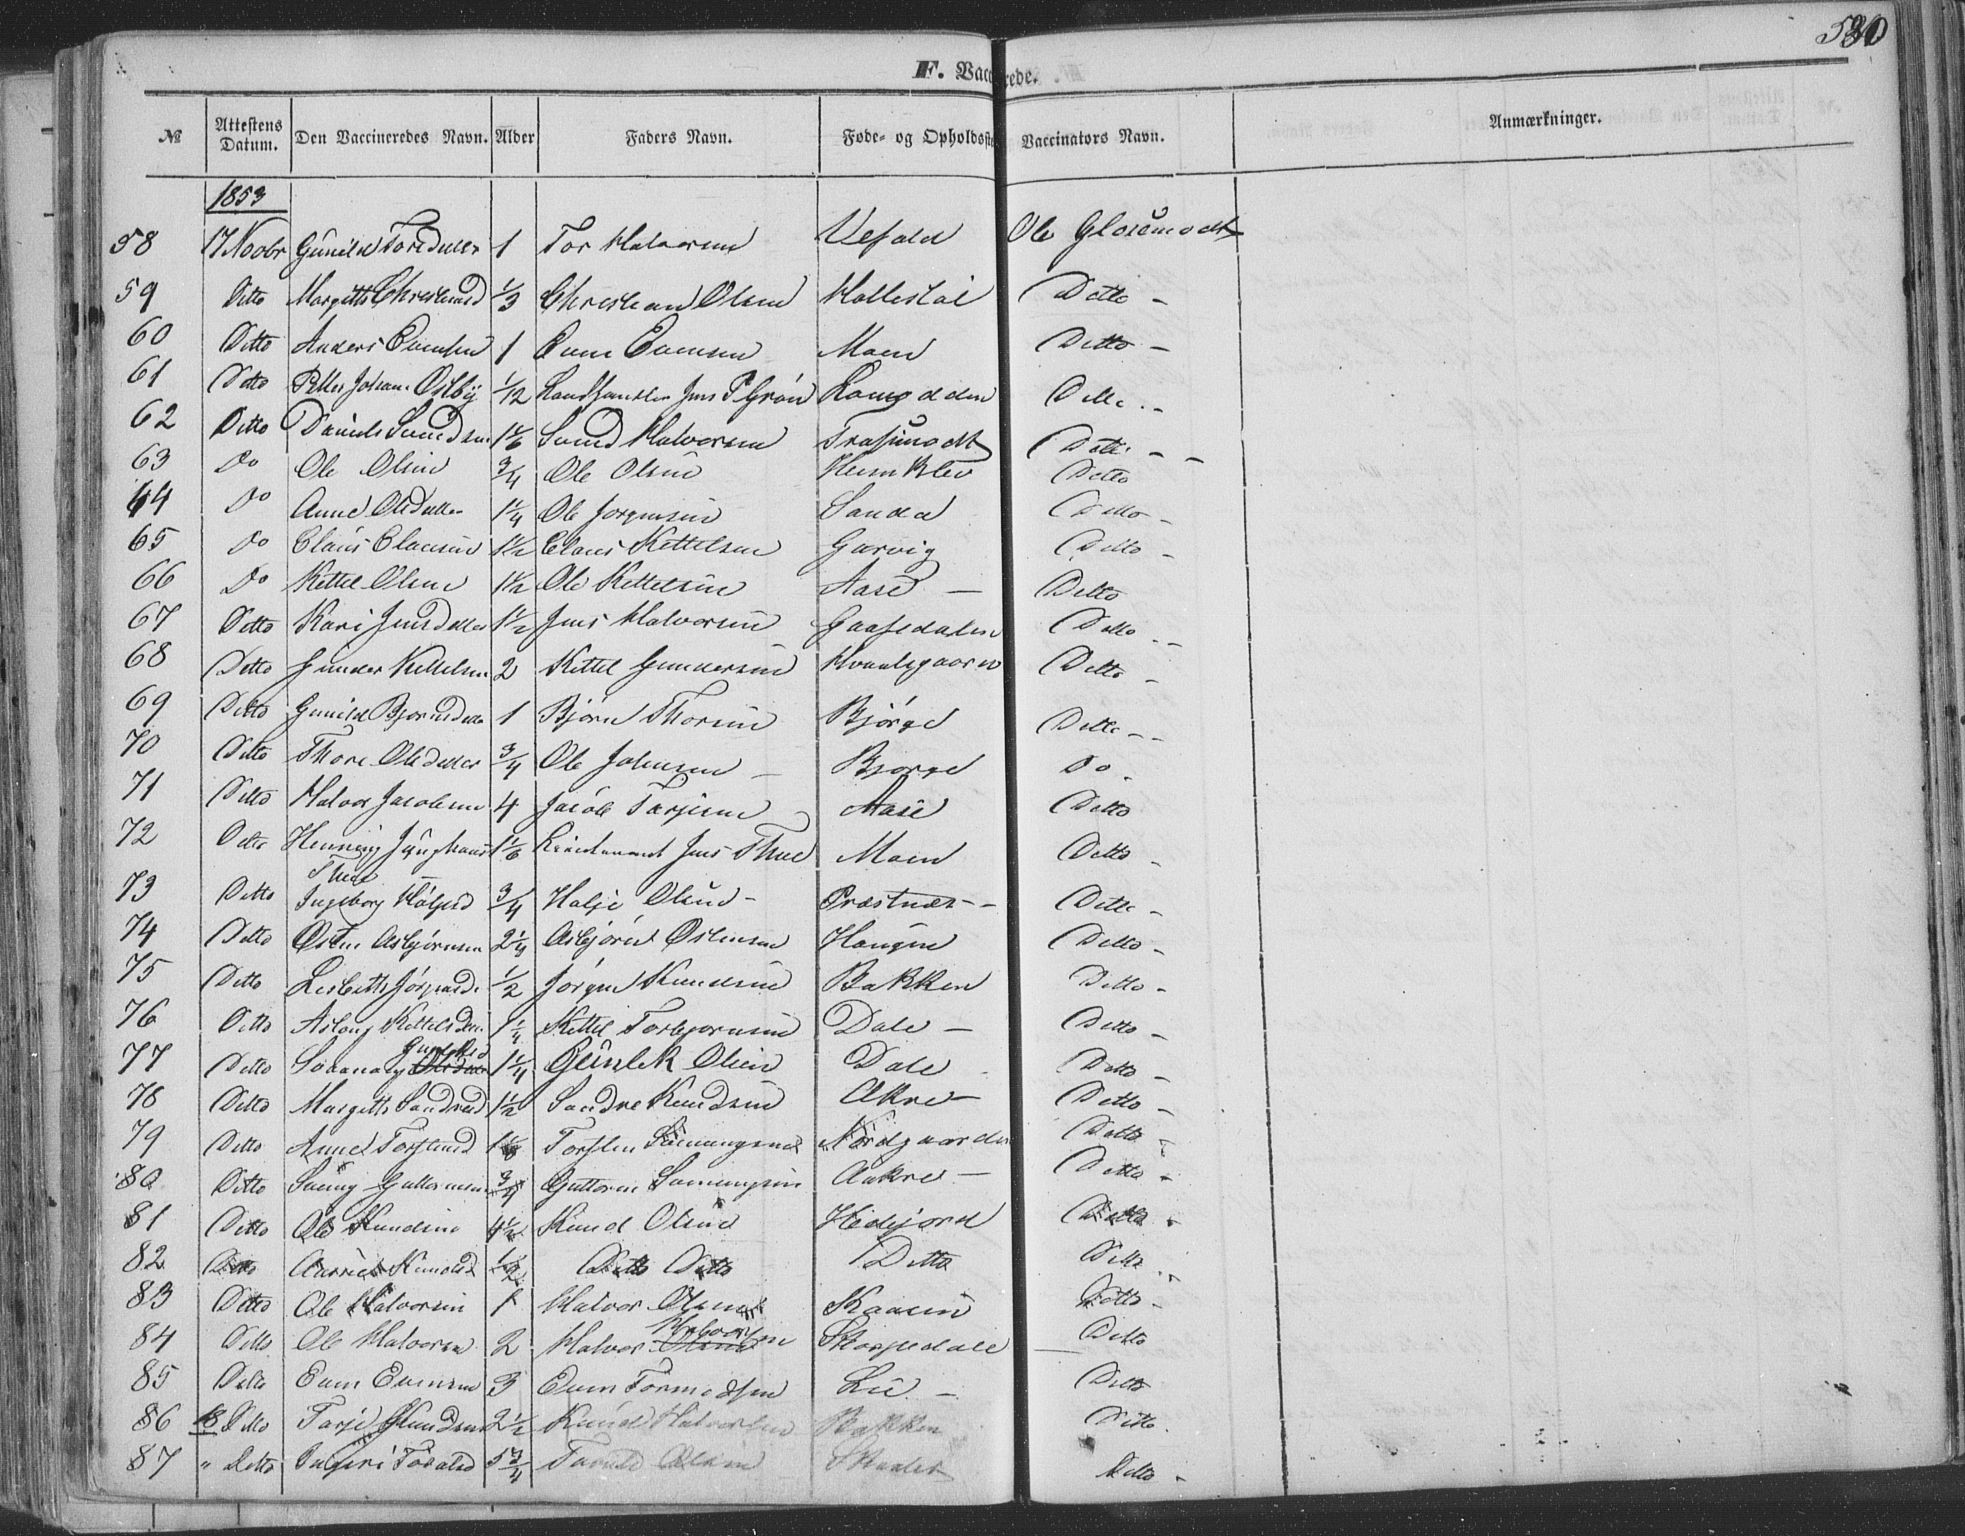 530
F. Vaccinerede.
№ Attestens Datum. Den Vaccineredes Navn. Alder Faders Navn. Føde- og Opholdsste Vaccinators Navn. Anmærkninger.
1853
58 17 Novbr Gunild Torsdatter 1 Tor Halvorsen Uefald Ole Glosemodt
59 Ditto Margith Christiansd 1/3 Christian Olsen Ditto -
60 Ditto Anders Evensen 1 Even Evensen Moen Ditto -
61 Ditto Petter Johan Østby 1/12 Landhandler Jens P Grøn Ditto -
62 Ditto Daniel Svendsen 1 1/6 Svend Halvorsen Ditto - -
63 Do Ole Olsen 3/4 Ole Olsen Ditto
64 Do Anne Olsdatter 1 1/4 Ole Jørgensen Sanda Ditto -
65 Do Claus Clausen 1 1/2 Claus Kettelsen Garvig Ditto -
66 Do Kettel Olsen 1 1/2 Ole Kettelsen Aase - Ditto
67 Ditto Kari Jensdatter 1 1/2 Jens Halvorsen Gaasedalen Ditto - -
68 Ditto Gunder Kettelsen 2 Kettel Gundersen Hvaalsgaarn Ditto -
69 Ditto Gunild Bjørnsdatter 1 Bjørn Thorsen Bjørge Ditto - -
70 Ditto Thore Olsdatter 3/4 Ole Johnsen - Bjørge Do -
71 Ditto Halvor Jacobsen 4 Jacob Tarjesen Aase Ditto
72 Ditto Henning Junghans Thue 1 1/6 Lieutenant Jens Thue Moen Ditto -
73 Ditto Ingeborg Haljesd 3/4 Halje Olsen - Præstnæs - Ditto -
74 Ditto Østen Asbjørnsen 2 1/4 Asbjørn Østensen Haugen Ditto -
75 Ditto Lisbeth Jørgensd 1/2 Jørgen Knudsen Bakken Ditto -
76 Ditto Aslaug Kettelsdtr 1 1/4 Kettel Torbjørnsen Dale - Ditto -
77 Ditto Gunleksd 1 1/4 Gunlek Olsen Dale - Ditto -
78 Ditto Margith Sandresd 1 1/2 Sandre Knudsen Akre - Ditto -
79 Ditto Anne Torstensd Torsten Sæmungsen Nordgaarden Ditto -
80 Ditto Sæmung Guttormsen 3/4 Guttorm Sæmungsen Aakre - Ditto -
81 Ditto Ole Knudsen 4 1/2 Knud Olsen Hedejord Ditto -
82 Ditto Knudsd 1/2 Ditto Ditto Ditto Ditto - -
83 Ditto Ole Halvorsen 1 Halvor Olsen Kaasen Ditto -
84 Ditto Ole Halvorsen 2 Halvor Halvorsen Skorpedale Ditto
85 Ditto Even Evensen 3 Even Tormodsen Lie - Ditto
86 18 Ditto Tarje Knudsen 2 1/2 Knud Halvorsen Bakken Ditto.
87 " Ditto 5 3/4 Olsen Ditto -